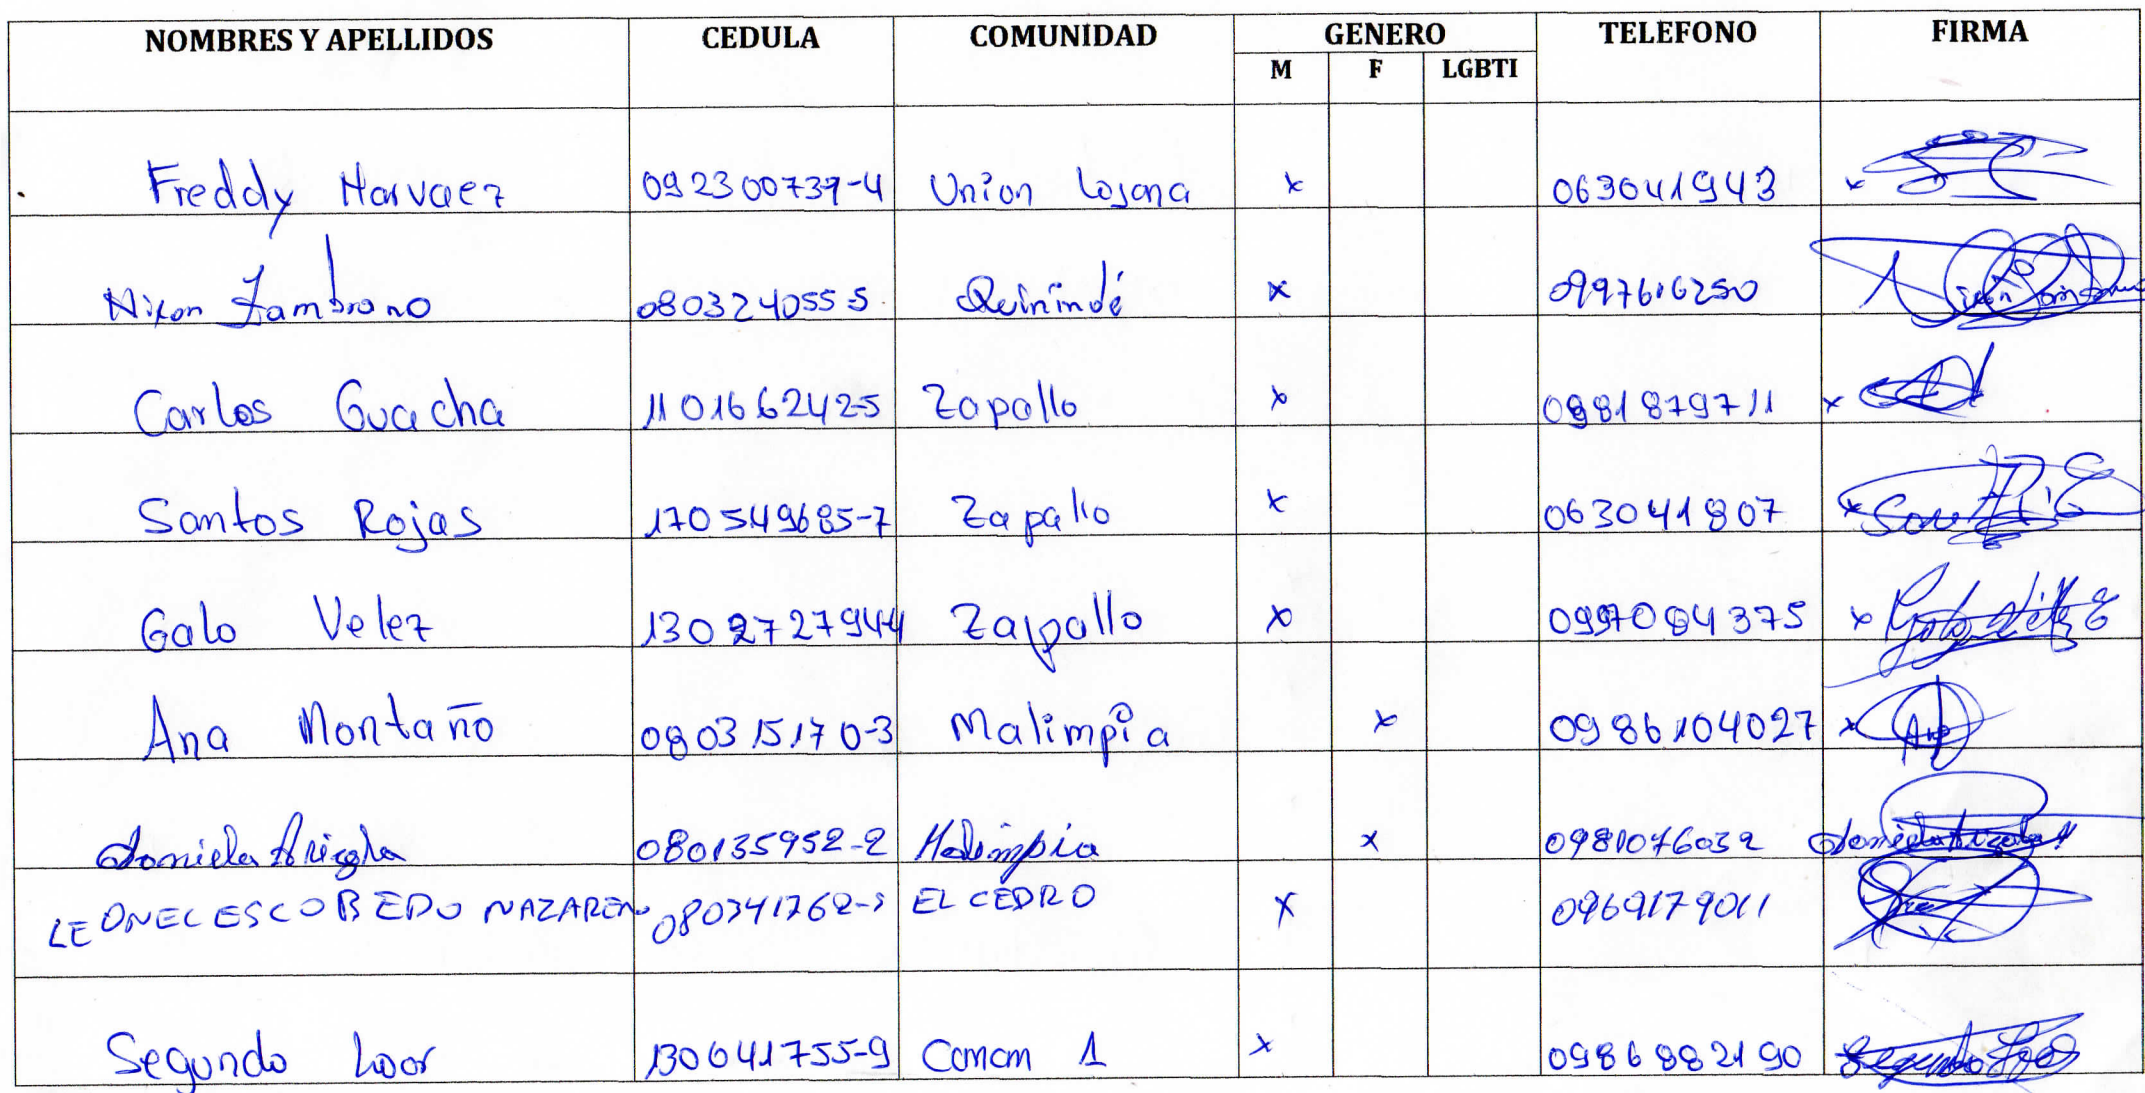 NOMBRES Y APELLIDOS CEDULA COMUNIDAD GENERO TELEFONO FIRMA
M F LGBTI
Freddy Narvaez 092300737-4 Union Lojana x 063041943 x
Nixon Zambrano 080324055-5 Quinindé x 0997616250
Carlos Guacha 110166242-5 Zapallo x 0981879711 x
Santos Rojas 170549685-7 Zapallo x 063041807 x
Galo Velez 1302727944 Zapallo x 0997084375 x Galo Velez
Ana Montaño 080315170-3 Malimpia x 0986104027 x Ana
Daniela 080135952-2 Malimpia x 0981076032 Daniela
LEONEL ESCOBEDO NAZAREN EL CEDRO x 0969179011
Segundo Loor 130641755-9 Ccncm 1 x 0986882190 Segundo Loor